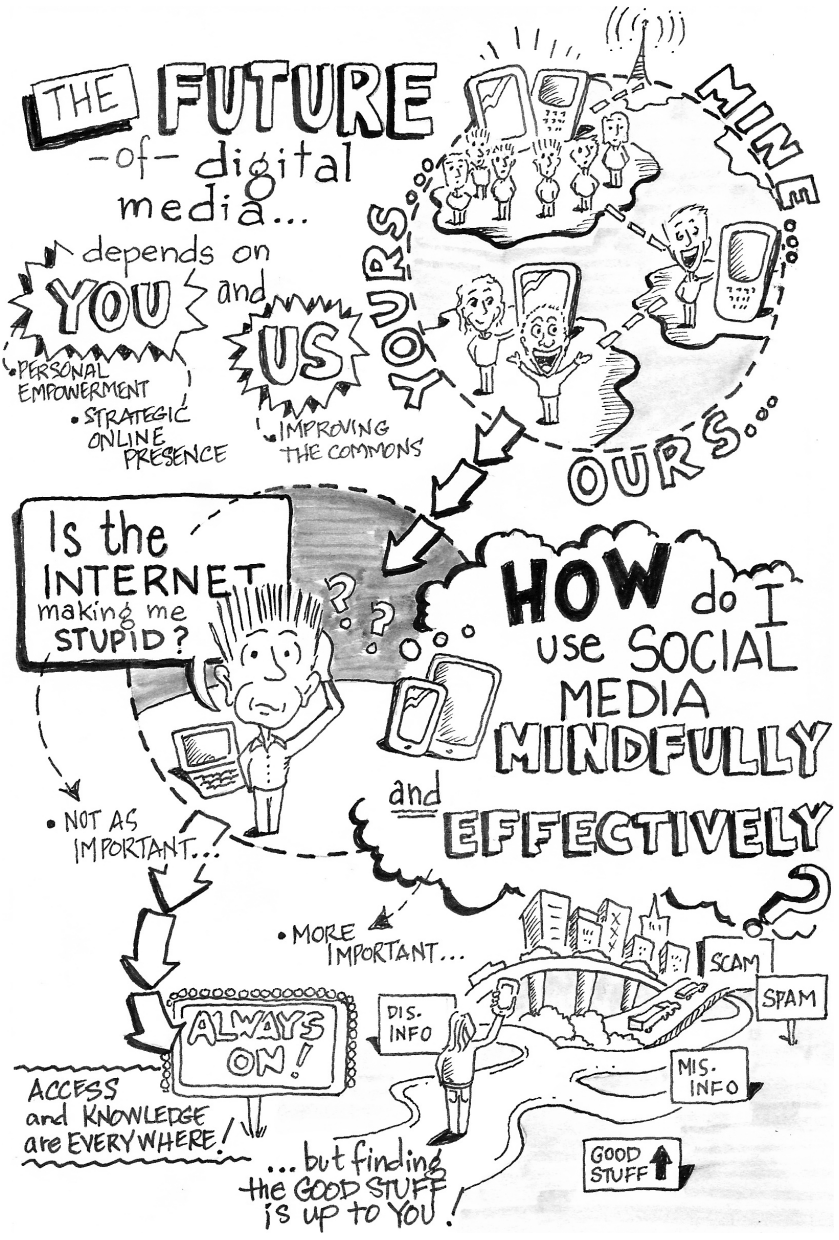 THE FUTURE
-of- digital
media...
depends on
YOU and
US
• PERSONAL
EMPOWERMENT
• STRATEGIC
ONLINE
PRESENCE
• IMPROVING
THE COMMONS
YOURS...
MINE...
OURS...
Is the
INTERNET
making me
STUPID?
? ?
HOW do I
use SOCIAL
MEDIA
MINDFULLY
and
EFFECTIVELY
?
• NOT AS
IMPORTANT...
• MORE
IMPORTANT...
ALWAYS
ON!
ACCESS
and KNOWLEDGE
are EVERYWHERE!
DIS.
INFO
SCAM
SPAM
MIS.
INFO
GOOD
STUFF
...but finding
the GOOD STUFF
is UP TO YOU!